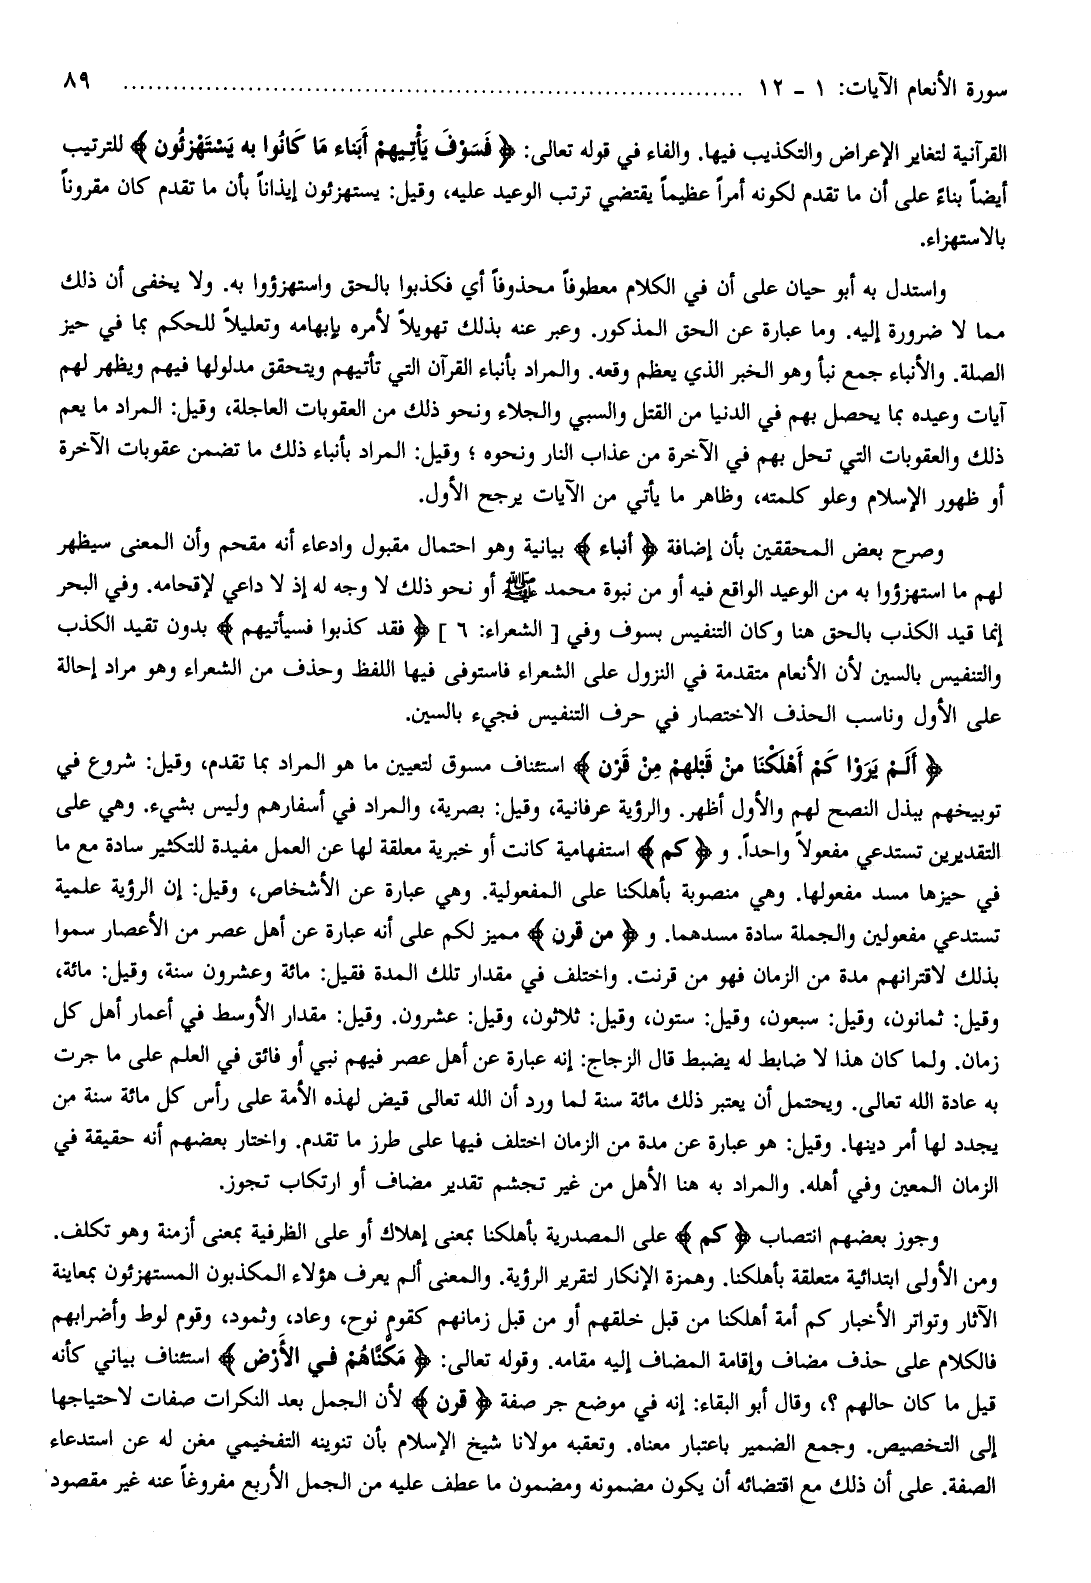 سورة الأنعام الآيات: ١ - ١٢ .......................................................................... ٨٩
القرآنية لتغاير الإعراض والتكذيب فيها. والفاء في قوله تعالى: ﴿ فَسَوْفَ يَأْتِيهِمْ أَنبَاء مَا كَانُوا به يَسْتَهْزِئُون ﴾ للترتيب
أيضاً بناءً على أن ما تقدم لكونه أمراً عظيماً يقتضي ترتب الوعيد عليه، وقيل: يستهزئون إيذاناً بأن ما تقدم كان مقروناً
بالاستهزاء.
واستدل به أبو حيان على أن في الكلام معطوفاً محذوفاً أي فكذبوا بالحق واستهزؤوا به. ولا يخفى أن ذلك
مما لا ضرورة إليه. وما عبارة عن الحق المذكور. وعبر عنه بذلك تهويلاً لأمره بإبهامه وتعليلاً للحكم بما في حيز
الصلة. والأنباء جمع نبأ وهو الخبر الذي يعظم وقعه. والمراد بأنباء القرآن التي تأتيهم ويتحقق مدلولها فيهم ويظهر لهم
آيات وعيده بما يحصل بهم في الدنيا من القتل والسبي والجلاء ونحو ذلك من العقوبات العاجلة، وقيل: المراد ما يعم
ذلك والعقوبات التي تحل بهم في الآخرة من عذاب النار ونحوه ؛ وقيل: المراد بأنباء ذلك ما تضمن عقوبات الآخرة
أو ظهور الإسلام وعلو كلمته، وظاهر ما يأتي من الآيات يرجح الأول.
وصرح بعض المحققين بأن إضافة ﴿ أنباء ﴾ بيانية وهو احتمال مقبول وادعاء أنه مقحم وأن المعنى سيظهر
لهم ما استهزؤوا به من الوعيد الواقع فيه أو من نبوة محمد ﷺ أو نحو ذلك لا وجه له إذ لا داعي لإقحامه. وفي البحر
إنما قيد الكذب بالحق هنا وكان التنفيس بسوف وفي [ الشعراء: ٦ ] ﴿ فقد كذبوا فسيأتيهم ﴾ بدون تقيد الكذب
والتنفيس بالسين لأن الأنعام متقدمة في النزول على الشعراء فاستوفى فيها اللفظ وحذف من الشعراء وهو مراد إحالة
على الأول وناسب الحذف الاختصار في حرف التنفيس فجيء بالسين.
﴿ أَلَمْ يَرَوْا كَمْ أَهْلَكْنَا منْ قَبْلهمْ مِنْ قَرْن ﴾ استئناف مسوق لتعيين ما هو المراد بما تقدم، وقيل: شروع في
توبيخهم ببذل النصح لهم والأول أظهر. والرؤية عرفانية، وقيل: بصرية، والمراد في أسفارهم وليس بشيء. وهي على
التقديرين تستدعي مفعولاً واحداً. و ﴿ كم ﴾ استفهامية كانت أو خبرية معلقة لها عن العمل مفيدة للتكثير سادة مع ما
في حيزها مسد مفعولها. وهي منصوبة بأهلكنا على المفعولية. وهي عبارة عن الأشخاص، وقيل: إن الرؤية علمية
تستدعي مفعولين والجملة سادة مسدهما. و ﴿ من قرن ﴾ مميز لكم على أنه عبارة عن أهل عصر من الأعصار سموا
بذلك لاقترانهم مدة من الزمان فهو من قرنت. واختلف في مقدار تلك المدة فقيل: مائة وعشرون سنة، وقيل: مائة،
وقيل: ثمانون، وقيل: سبعون، وقيل: ستون، وقيل: ثلاثون، وقيل: عشرون. وقيل: مقدار الأوسط في أعمار أهل كل
زمان. ولما كان هذا لا ضابط له يضبط قال الزجاج: إنه عبارة عن أهل عصر فيهم نبي أو فائق في العلم على ما جرت
به عادة الله تعالى. ويحتمل أن يعتبر ذلك مائة سنة لما ورد أن الله تعالى قيض لهذه الأمة على رأس كل مائة سنة من
يجدد لها أمر دينها. وقيل: هو عبارة عن مدة من الزمان اختلف فيها على طرز ما تقدم. واختار بعضهم أنه حقيقة في
الزمان المعين وفي أهله. والمراد به هنا الأهل من غير تجشم تقدير مضاف أو ارتكاب تجوز.
وجوز بعضهم انتصاب ﴿ كم ﴾ على المصدرية بأهلكنا بمعنى إهلاك أو على الظرفية بمعنى أزمنة وهو تكلف.
ومن الأولى ابتدائية متعلقة بأهلكنا. وهمزة الإنكار لتقرير الرؤية. والمعنى ألم يعرف هؤلاء المكذبون المستهزئون بمعاينة
الآثار وتواتر الأخبار كم أمة أهلكنا من قبل خلقهم أو من قبل زمانهم كقوم نوح، وعاد، وثمود، وقوم لوط وأضرابهم
فالكلام على حذف مضاف وإقامة المضاف إليه مقامه. وقوله تعالى: ﴿ مَكَّنَّاهُمْ فِي الأَرْض ﴾ استئناف بياني كأنه
قيل ما كان حالهم ؟، وقال أبو البقاء: إنه في موضع جر صفة ﴿ قرن ﴾ لأن الجمل بعد النكرات صفات لاحتياجها
إلى التخصيص. وجمع الضمير باعتبار معناه. وتعقبه مولانا شيخ الإسلام بأن تنوينه التفخيمي مغن له عن استدعاء
الصفة. على أن ذلك مع اقتضائه أن يكون مضمونه ومضمون ما عطف عليه من الجمل الأربع مفروغاً عنه غير مقصود